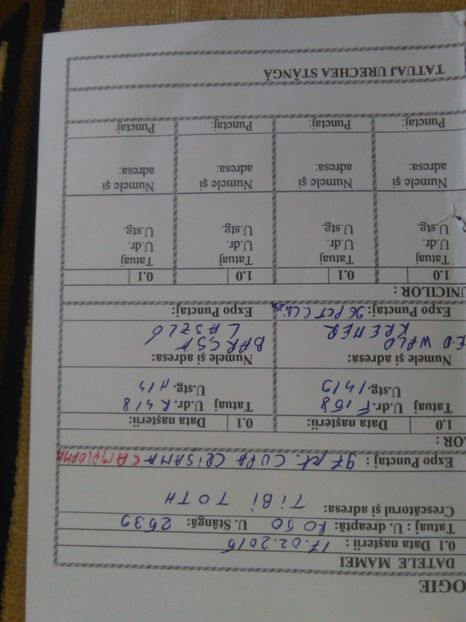 OGIE
DATELE MAMEI
0.1 Data nașterii : 17.02.2015
Tatuaj : U. dreaptă: RO 50 U. Stângă: 2539
Crescătorul și adresa:
TIBI TOTH
Expo Punctaj : 97 pt. CUPA CRISAMA
LOR :
1.0 Data nașterii: 0.1 Data nașterii:
Tatuaj U.dr. F 158 Tatuaj U.dr. R 418
U.stg. 1419 U.stg. H14
Numele și adresa: Numele și adresa:
EDWALD BARCSA
KREMER LASZLÓ
Expo Punctaj: 96 PCT Expo Punctaj:
UNICILOR :
1.0 0.1 1.0 0.1
Tatuaj Tatuaj Tatuaj Tatuaj
U.dr. U.dr. U.dr. U.dr.
U.stg. U.stg. U.stg. U.stg.
Numele și Numele și Numele și Numele și
adresa: adresa: adresa: adresa:
Punctaj: Punctaj: Punctaj: Punctaj:
TATUAJ URECHEA STÂNGĂ